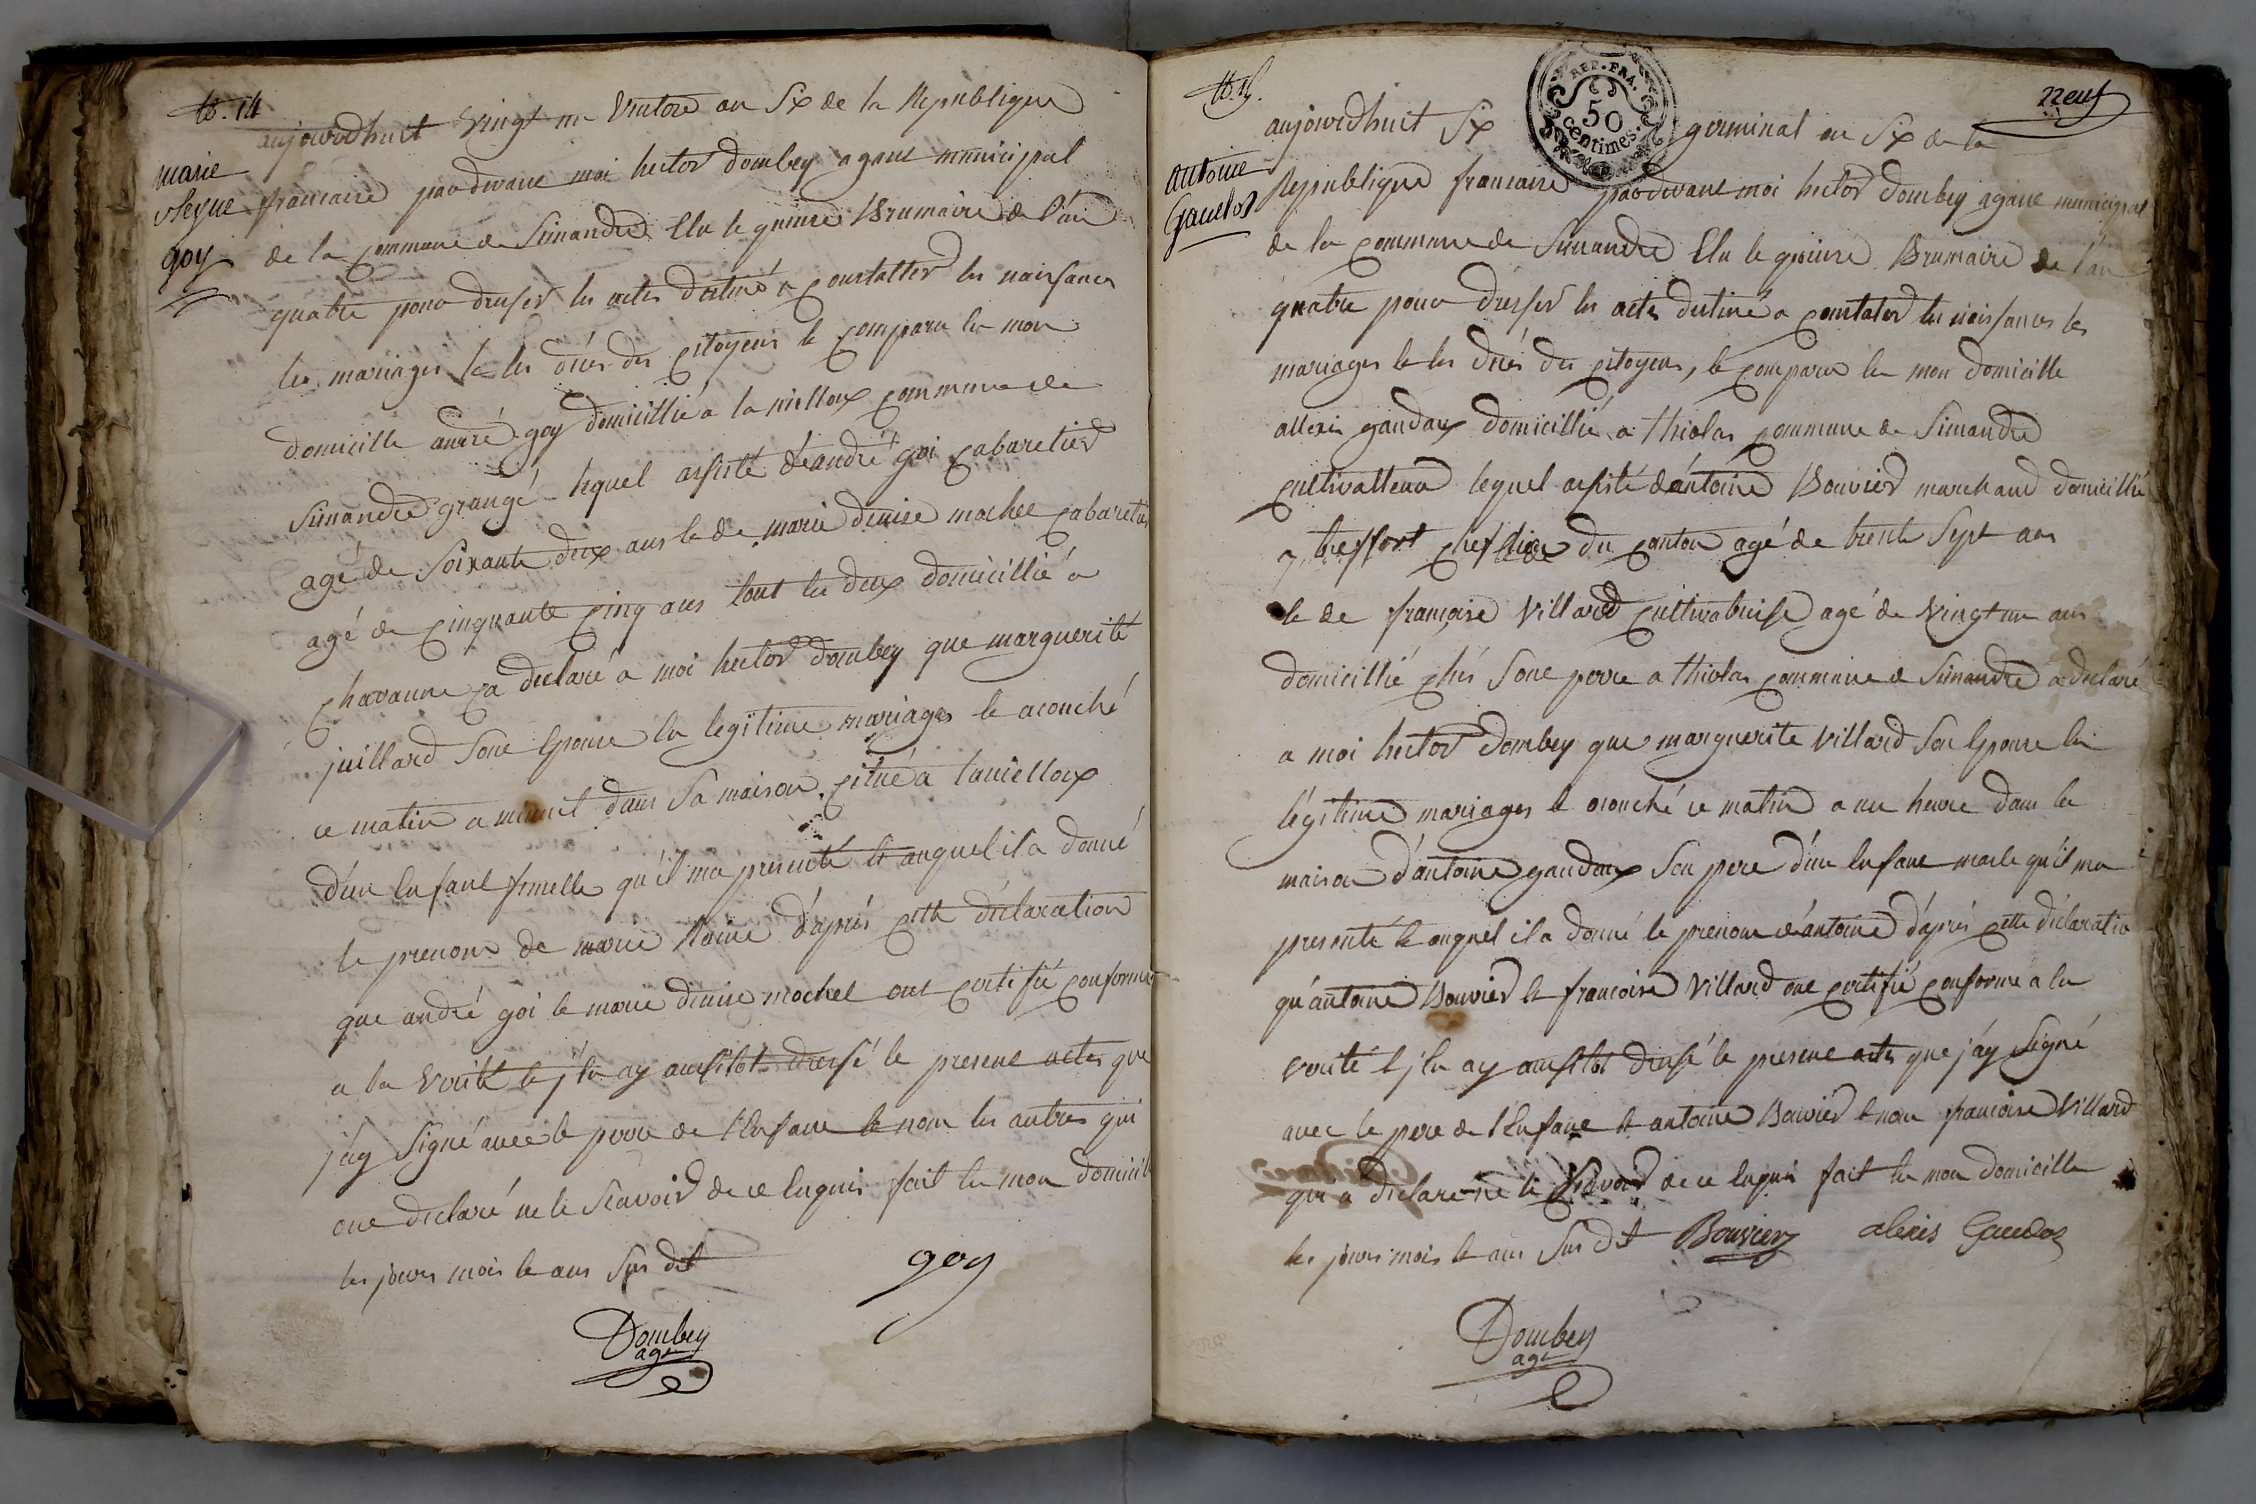 N.º 14
marie
Reyne
goy
aujourdhuit vingt un Ventose an Six de la Republique
francaise pardevant moi hector dombey agant municipal
de la commune de Simandre Elu le quinze Brumaire de l'an
quatre pour dresser les actes destiné a constatter les naissances
les mariages et les décés des citoyens et comparu en mon
domicille andré goy domicillié a la vielloux commune de
Simandre grangé lequel assisté de andré goi cabaretier
agé de Soixante deux ans et de marie denise mochel cabaretier
agé de cinquante cinq ans tout les deux domicillié a
chavanne ca declaré a moi hector dombey que marguerite
juillard Sont Epouse en legitime mariages et acouché
ce matin a minuit dans Sa maison citué a lavielloux
d'un Enfant femelle qu'il ma presenté et auquel il a donné
le prenom de marie Reine d'aprés cette déclaration
que andré goi et marie denise mochel ont certifié conforme
a la verité et j'en ay aussitot dressé le present actes que
j'ay Signé avec le perre de l'Enfant et non les autres qui
ont declaré ne le Scavoir de ce Enquis fait en mon domicille
les jours mois et ans Sus dit
goy
Dombey
agt
N.º 15.
neuf
REP. FRA.
50
centimes.
Antoine
Gaudoz
aujourdhuit Six germinal an Six de la
Republique francaise pardevant moi hector dombey agant municipal
de la commune de Simandre Elu le quinze Brumaire de l'an
quatre pour dresser les actes destiné a constater les naissances les
mariages et les décés des citoyens, et comparu en mon domicille
allexis gaudoux domicillié a thiolas commune de Simandre
cultivatteur lequel assisté d'antoine Bouvier marchand domicillié
a treffort chef lieu du canton agé de trente Sept ans
et de francoise Villard cultivatrice agé de vingt un ans
domicillié chés Sont perre a thiolas commune de Simandre a déclaré
a moi hector Dombey que marguerite Villard Son Epouse en
légitime mariages et acouché ce matin a une heure dans la
maison d'antoine gaudoux Son pere d'un Enfant masle qu'il ma
presenté et auquel il a donné le prenom d'antoine d'aprés cette déclaration
qu'antoine Bouvier et francoise Villard ont certifié conforme a la
verité et j'en ay aussitot dressé le present actes que j'ay Signé
avec le pere de l'Enfant et antoine Bouvier et non francoise Villard
qui a déclare ne le Scavoir de ce Enquis fait en mon domicille
les jours mois et ans Sus dit Bouvier alexis Gaudoz
Dombey
agt